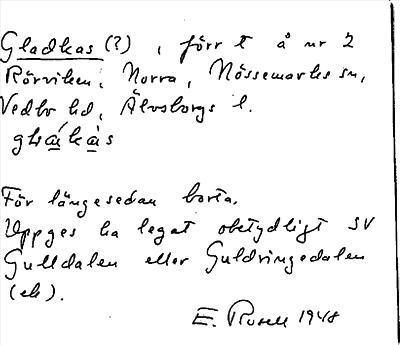 Gladkas (?), förr t å nr 2
Rörviken, Norra, Nössemarks sn,
Vedbo hd, Älvsborgs l.
För längesedan borta.
Uppges ha legat obetydligt SV
Gulldalen eller Guldringedalen
(ek).
E. Rosell 1948